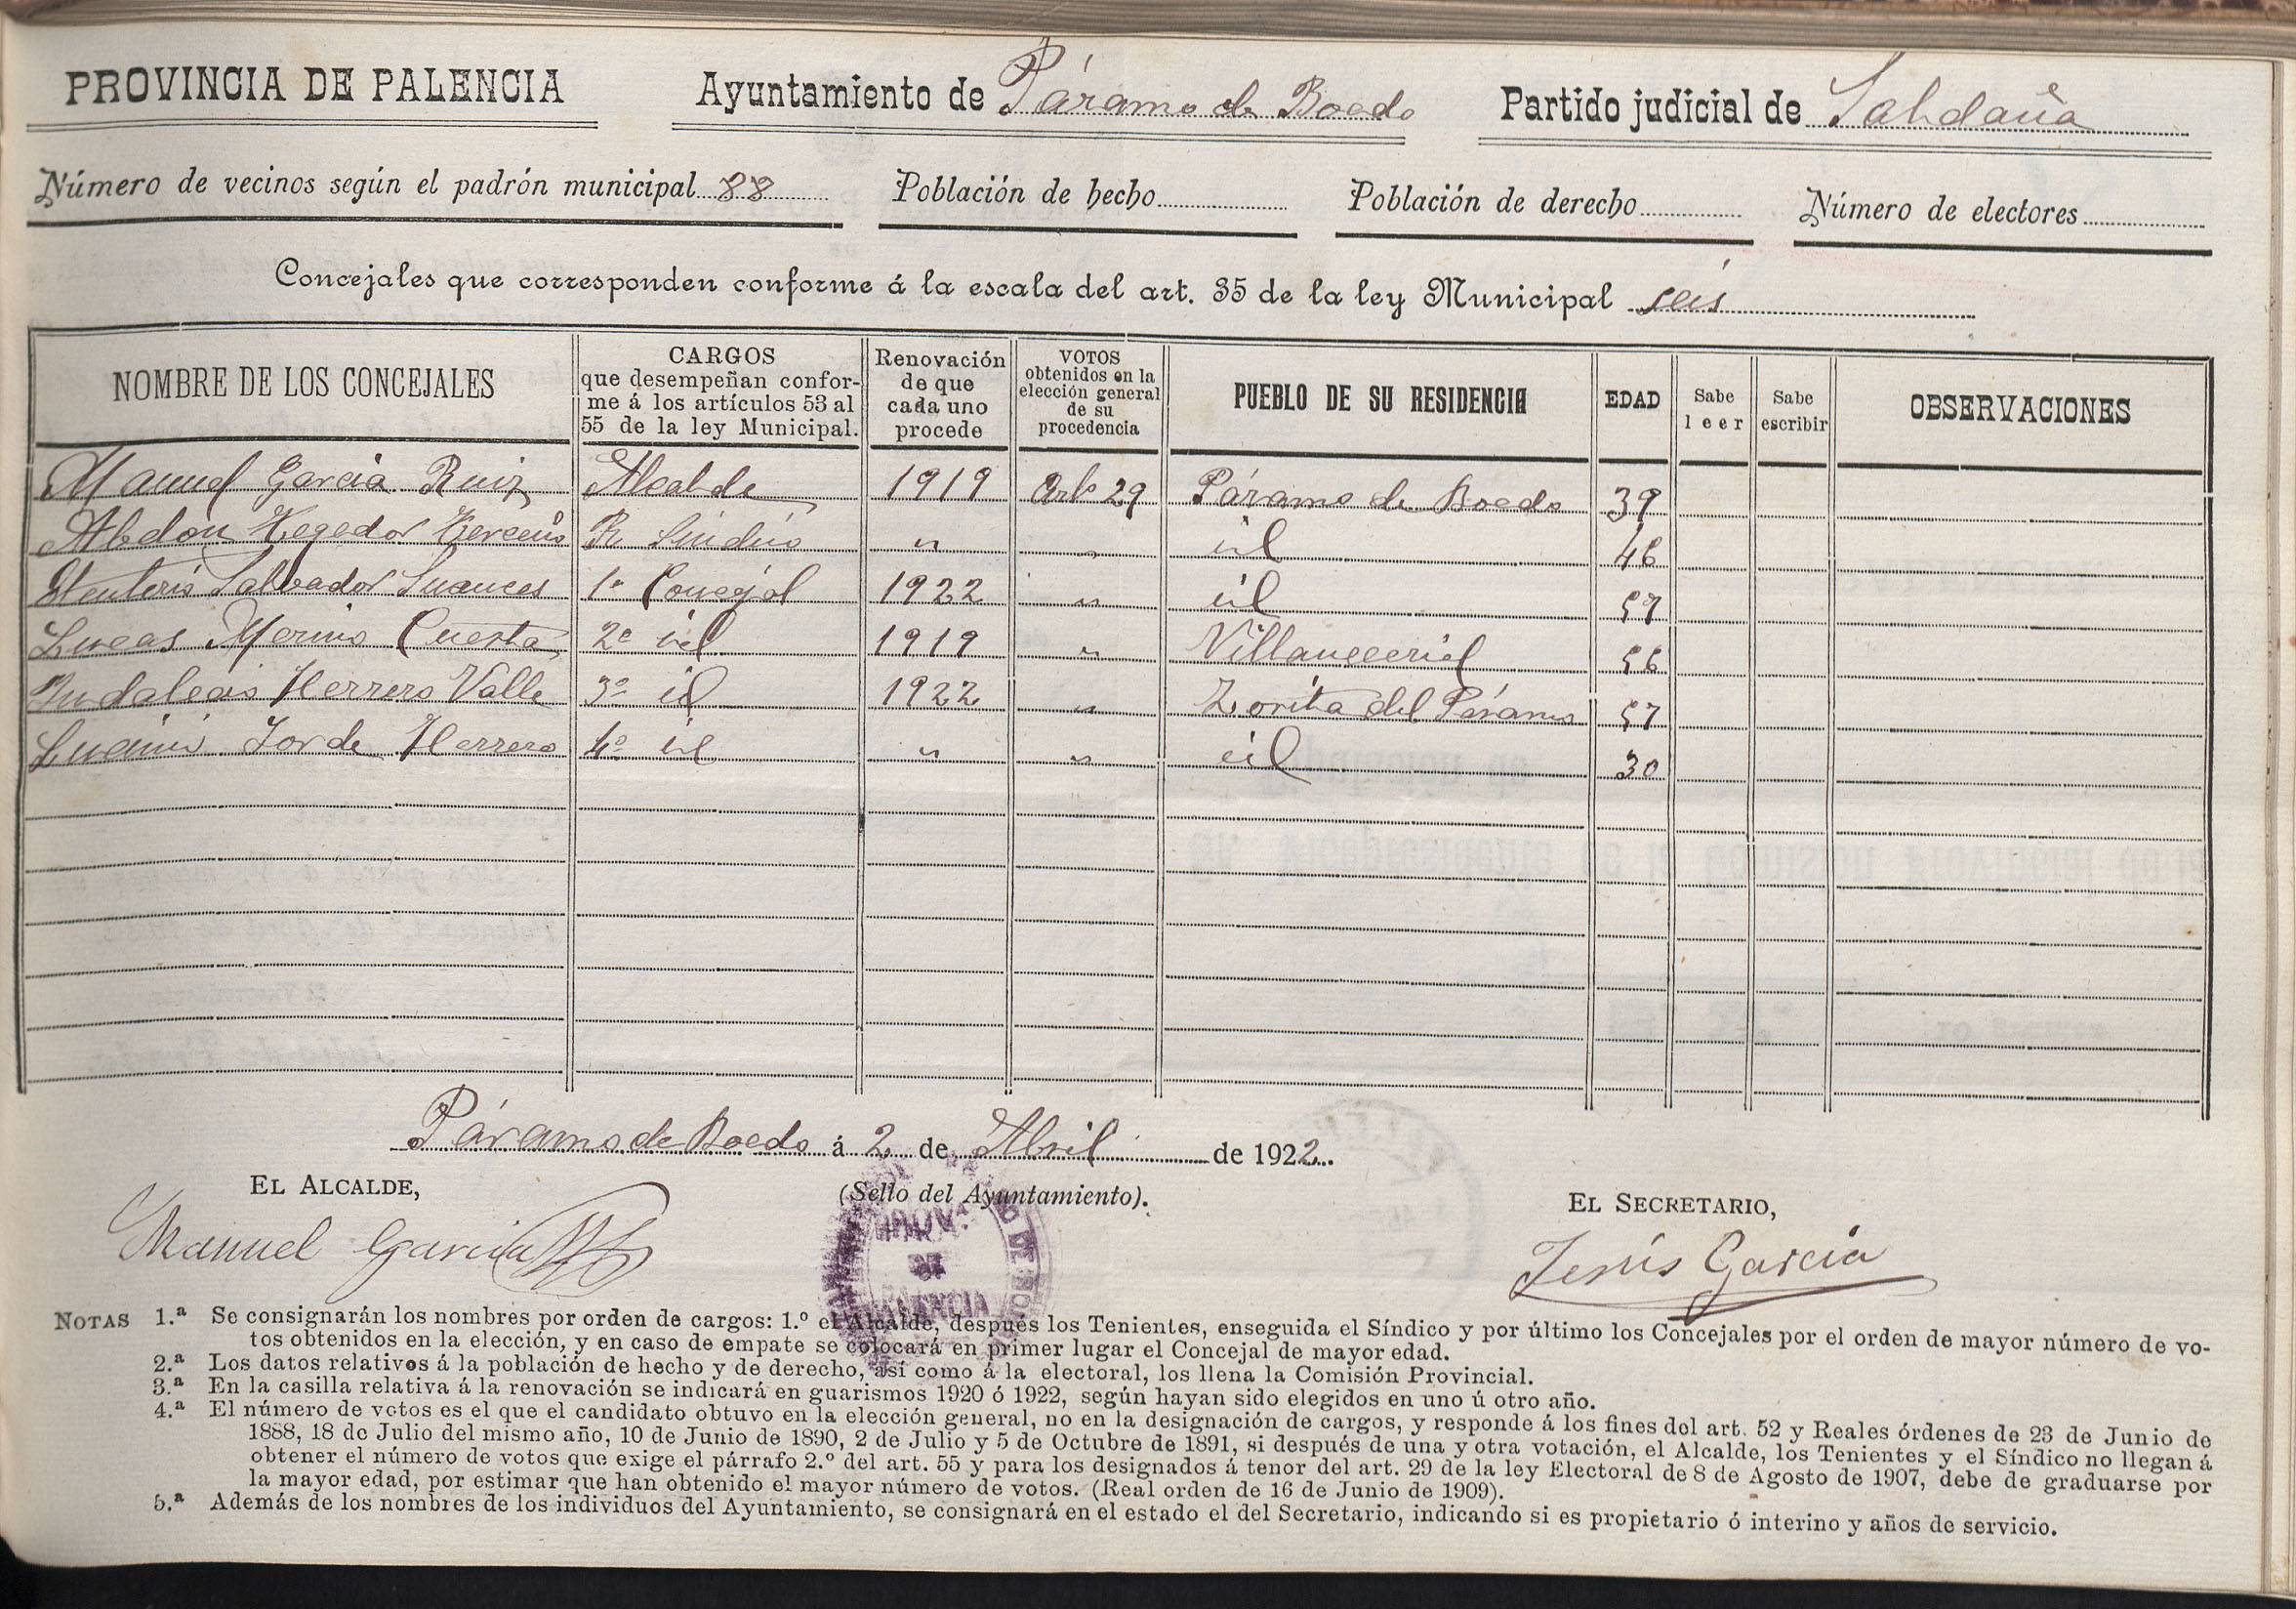 PROVINCIA DE PALENCIA Ayuntamiento de Páramo de Boedo Partido judicial de Saldaña
Número de vecinos según el padrón municipal 88 Población de hecho Población de derecho Número de electores
Concejales que corresponden conforme á la escala del art. 35 de la ley Municipal seis
NOMBRE DE LOS CONCEJALES
CARGOS
que desempeñan confor-
me á los artículos 53 al
55 de la ley Municipal.
Renovación
de que
cada uno
procede
VOTOS
obtenidos en la
elección general
de su
procedencia
PUEBLO DE SU RESIDENCIA
EDAD
Sabe
leer
Sabe
escribir
OBSERVACIONES
Manuel García Ruiz Alcalde 1919 Artº 29 Páramo de Boedo 39
Abdón R. Síndico " " id 46
Salvador 1º Concejal 1922 " id 57
Lucas Merino Cuesta 2º id 1919 " 56
Indalecio Herrero Valle 3º id 1922 " Zorita del Páramo 57
Jorde Herrero 4º id " " id 30
Páramo de Boedo á 2 de Abril de 1922.
EL ALCALDE,
(Sello del Ayuntamiento).
EL SECRETARIO,
Manuel García
Jesús García
NOTAS 1.ª Se consignarán los nombres por orden de cargos: 1.º el Alcalde, después los Tenientes, enseguida el Síndico y por último los Concejales por el orden de mayor número de vo-
tos obtenidos en la elección, y en caso de empate se colocará en primer lugar el Concejal de mayor edad.
2.ª Los datos relativos á la población de hecho y de derecho, así como á la electoral, los llena la Comisión Provincial.
3.ª En la casilla relativa á la renovación se indicará en guarismos 1920 ó 1922, según hayan sido elegidos en uno ú otro año.
4.ª El número de votos es el que el candidato obtuvo en la elección general, no en la designación de cargos, y responde á los fines del art. 52 y Reales órdenes de 23 de Junio de
1888, 18 de Julio del mismo año, 10 de Junio de 1890, 2 de Julio y 5 de Octubre de 1891, si después de una y otra votación, el Alcalde, los Tenientes y el Síndico no llegan á
obtener el número de votos que exige el párrafo 2.º del art. 55 y para los designados á tenor del art. 29 de la ley Electoral de 8 de Agosto de 1907, debe de graduarse por
la mayor edad, por estimar que han obtenido el mayor número de votos. (Real orden de 16 de Junio de 1909).
5.ª Además de los nombres de los individuos del Ayuntamiento, se consignará en el estado el del Secretario, indicando si es propietario ó interino y años de servicio.